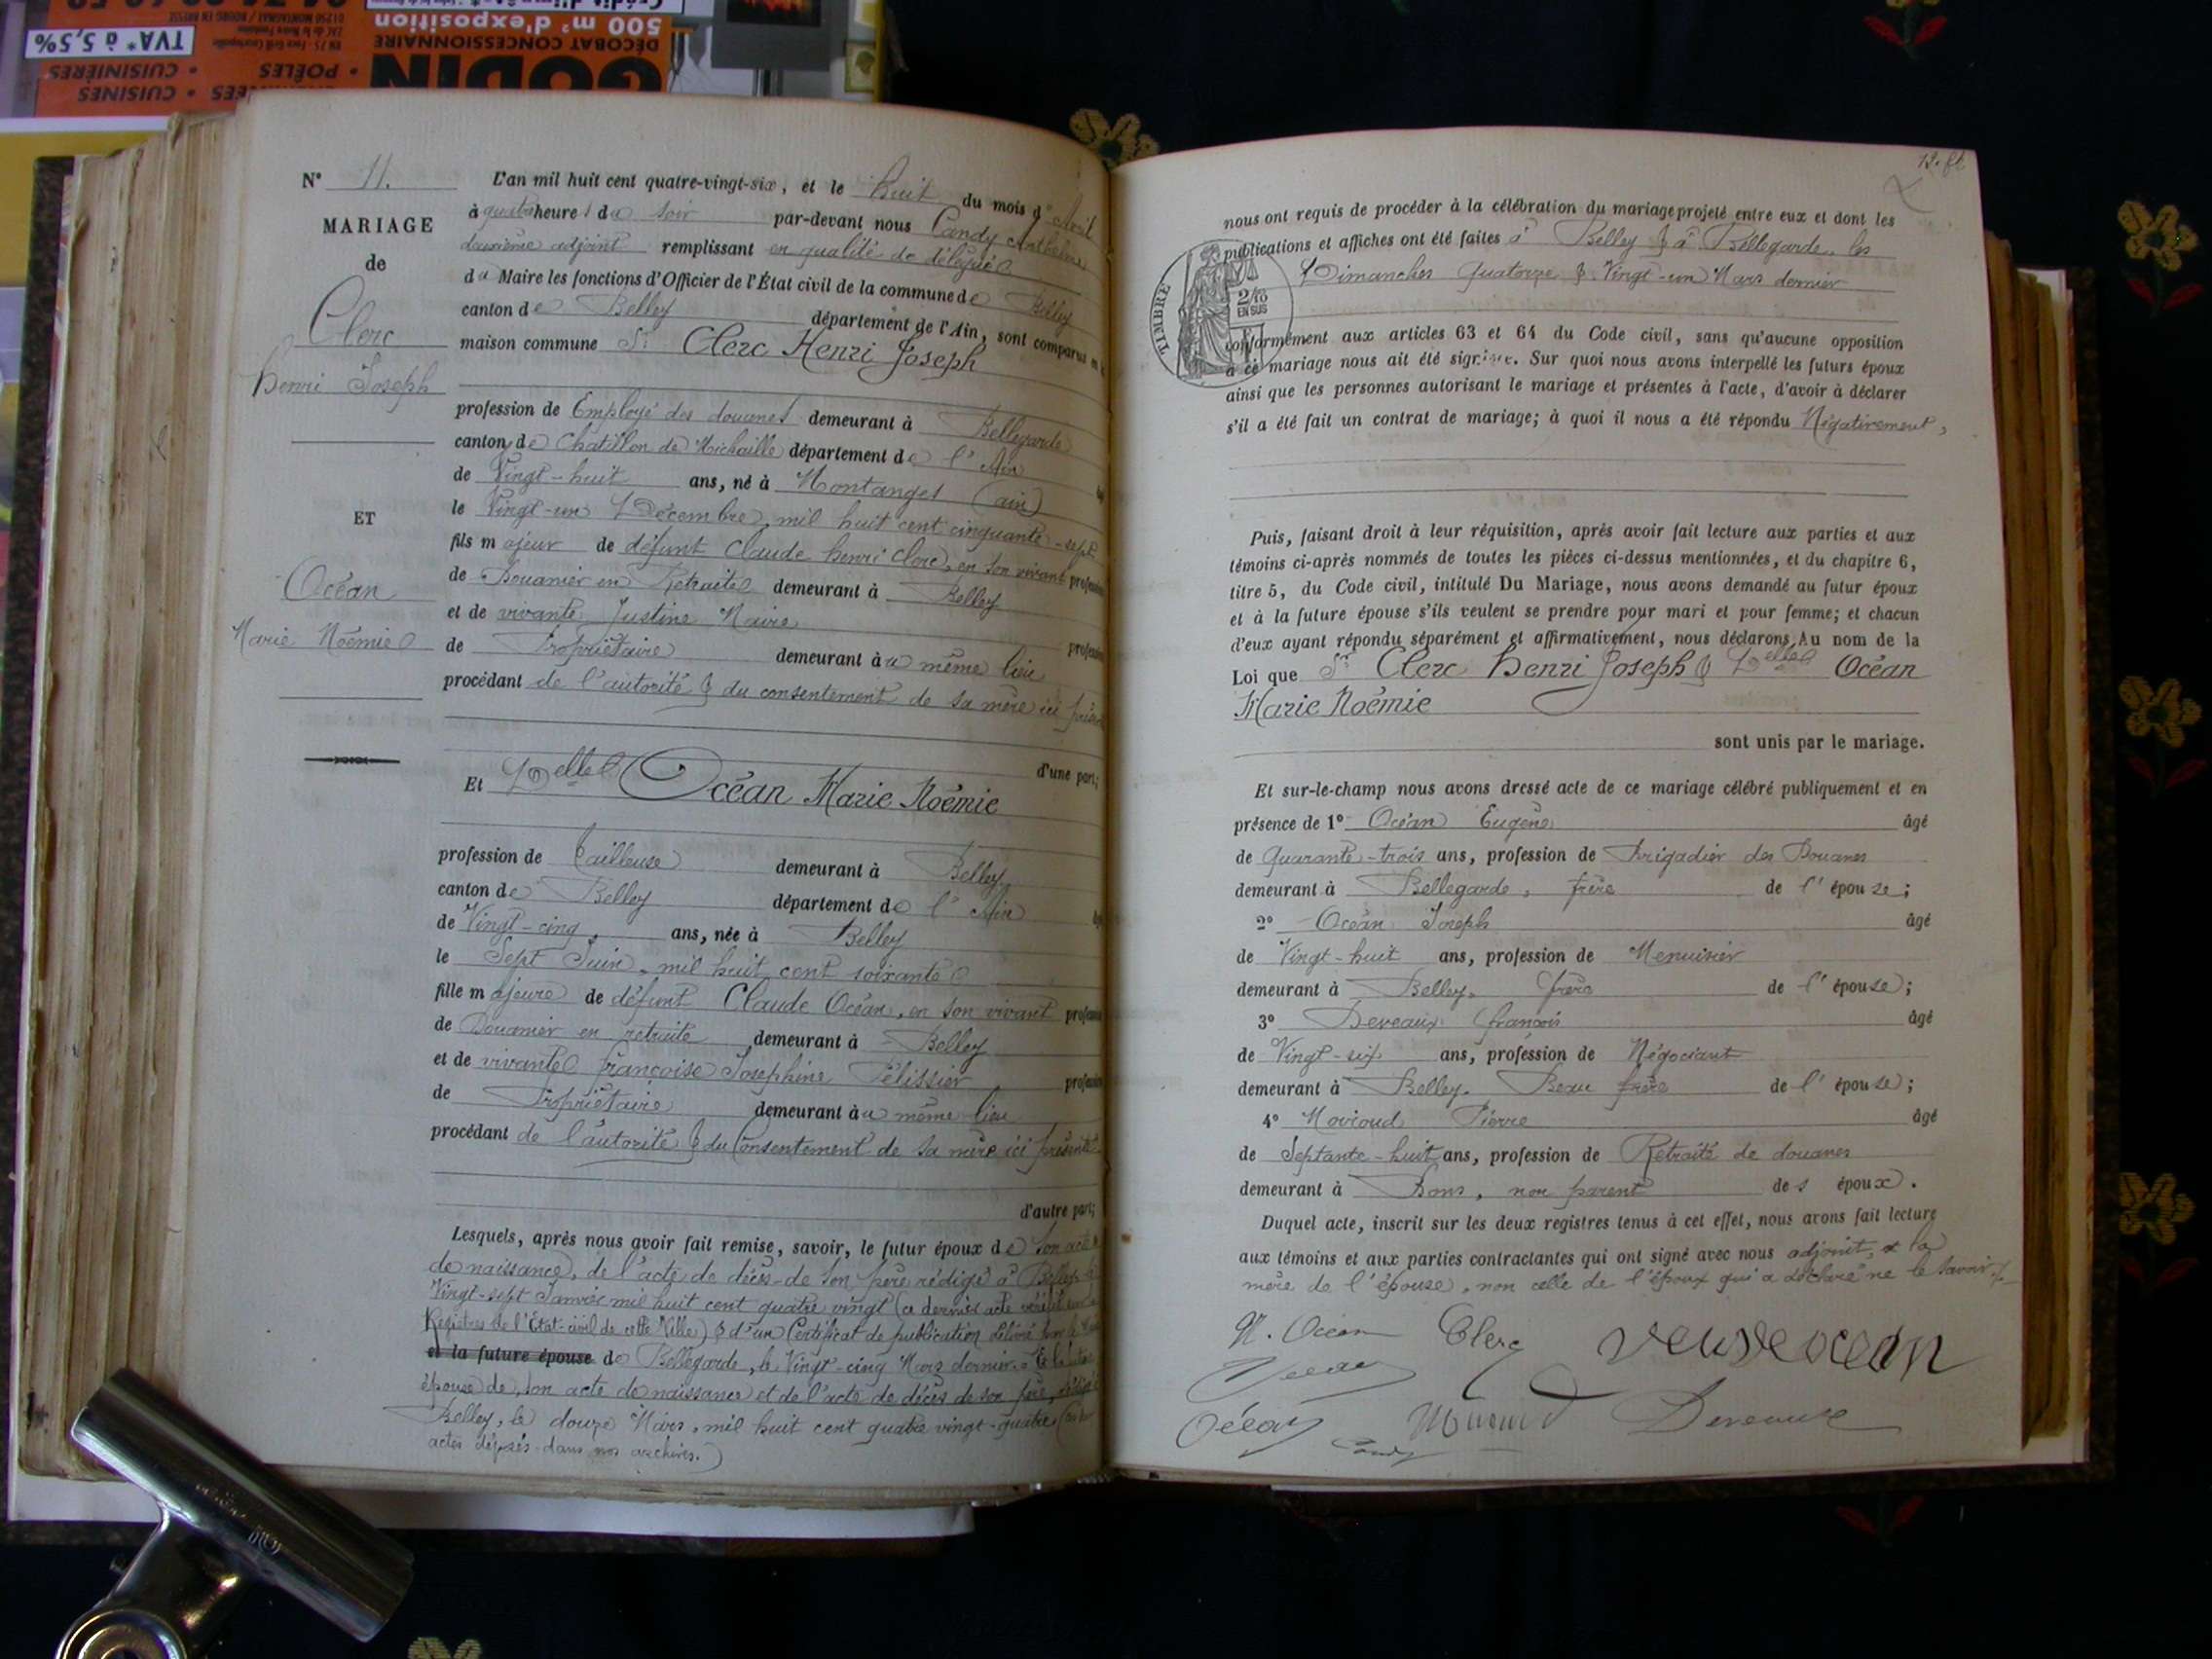 500 m² d'exposition
DÉCOBAT CONCESSIONNAIRE
GODIN
TVA* à 5,5%
• POÊLES • CUISINIÈRES
• CUISINES
N° 11.
MARIAGE
de
Clerc
henri Joseph
ET
Océan
Marie Noëmie
L'an mil huit cent quatre-vingt-six, et le huit du mois d'Avril
à quatre heures du soir par-devant nous Candy Anthelme
deuxième adjoint remplissant en qualité de délégué
du Maire les fonctions d'Officier de l'État civil de la commune de Belley
canton de Belley département de l'Ain, sont comparus en la
maison commune Sr Clerc Henri Joseph
profession de Employé des douanes demeurant à Bellegarde
canton de Chatillon de Michaille département de l'Ain
de Vingt-huit ans, né à Montanges (ain)
le Vingt-un Décembre, mil huit cent cinquante-sept
fils majeur de défunt Claude henri Clerc, en son vivant profession
de Douanier en Retraite demeurant à Belley
et de vivante Justine Maire profession
de Propriétaire demeurant au même lieu
procédant de l'autorité & du consentement de sa mère ici
d'une part;
Et Delle Océan Marie Noémie
profession de tailleuse demeurant à Belley
canton de Belley département de l'Ain
de Vingt-cinq ans, née à Belley
le Sept Juin, mil huit cent soixante
fille majeure de défunt Claude Océan, en son vivant profession
de Douanier en retraite demeurant à Belley
et de vivante françoise Josephine Pélissier profession
de Propriétaire demeurant au même lieu
procédant de l'autorité & du Consentement de sa mère ici présente
d'autre part;
Lesquels, après nous avoir fait remise, savoir, le futur époux de son acte
de naissance, de l'acte de décès de son père rédigé à Belley le
Vingt-sept Janvier mil huit cent quatre vingt (ce dernier acte
Registres de l'État-civil de cette Ville) & d'un Certificat de publication délivré
et la future épouse de Bellegarde, le Vingt-cinq Mars dernier. Et la
épouse de son acte de naissance et de l'acte de décès de son père, rédigé
Belley, le douze Mars, mil huit cent quatre vingt-quatre
actes déposés dans nos archives.)
nous ont requis de procéder à la célébration du mariage projeté entre eux et dont les
publications et affiches ont été faites à Belley & à Bellegarde, les
Dimanches Quatorze & Vingt-un Mars dernier
TIMBRE
2/10
EN SUS
conformément aux articles 63 et 64 du Code civil, sans qu'aucune opposition
à ce mariage nous ait été signifiée. Sur quoi nous avons interpellé les futurs époux
ainsi que les personnes autorisant le mariage et présentes à l'acte, d'avoir à déclarer
s'il a été fait un contrat de mariage; à quoi il nous a été répondu Négativement,
Puis, faisant droit à leur réquisition, après avoir fait lecture aux parties et aux
témoins ci-après nommés de toutes les pièces ci-dessus mentionnées, et du chapitre 6,
titre 5, du Code civil, intitulé Du Mariage, nous avons demandé au futur époux
et à la future épouse s'ils veulent se prendre pour mari et pour femme; et chacun
d'eux ayant répondu séparément et affirmativement, nous déclarons Au nom de la
Loi que Sr Clerc Henri Joseph & Delle Océan
Marie Noëmie
sont unis par le mariage.
Et sur-le-champ nous avons dressé acte de ce mariage célébré publiquement et en
présence de 1° Océan Eugène âgé
de Quarante-trois ans, profession de Brigadier des Douanes
demeurant à Bellegarde, frère de l'épouse;
2° Océan Joseph âgé
de Vingt-huit ans, profession de Menuisier
demeurant à Belley, frère de l'épouse;
3° Deveaux françois âgé
de Vingt-six ans, profession de Négociant
demeurant à Belley, Beau frère de l'épouse;
4° Pierre âgé
de Septante-huit ans, profession de Retraité de douanes
demeurant à Bons, non parent des époux.
Duquel acte, inscrit sur les deux registres tenus à cet effet, nous avons fait lecture
aux témoins et aux parties contractantes qui ont signé avec nous adjoint, & la
mère de l'épouse, non celle de l'époux qui a déclaré ne le savoir
N. Océan Clerc veuve ocean
Océan
Océan Deveaux
Candy